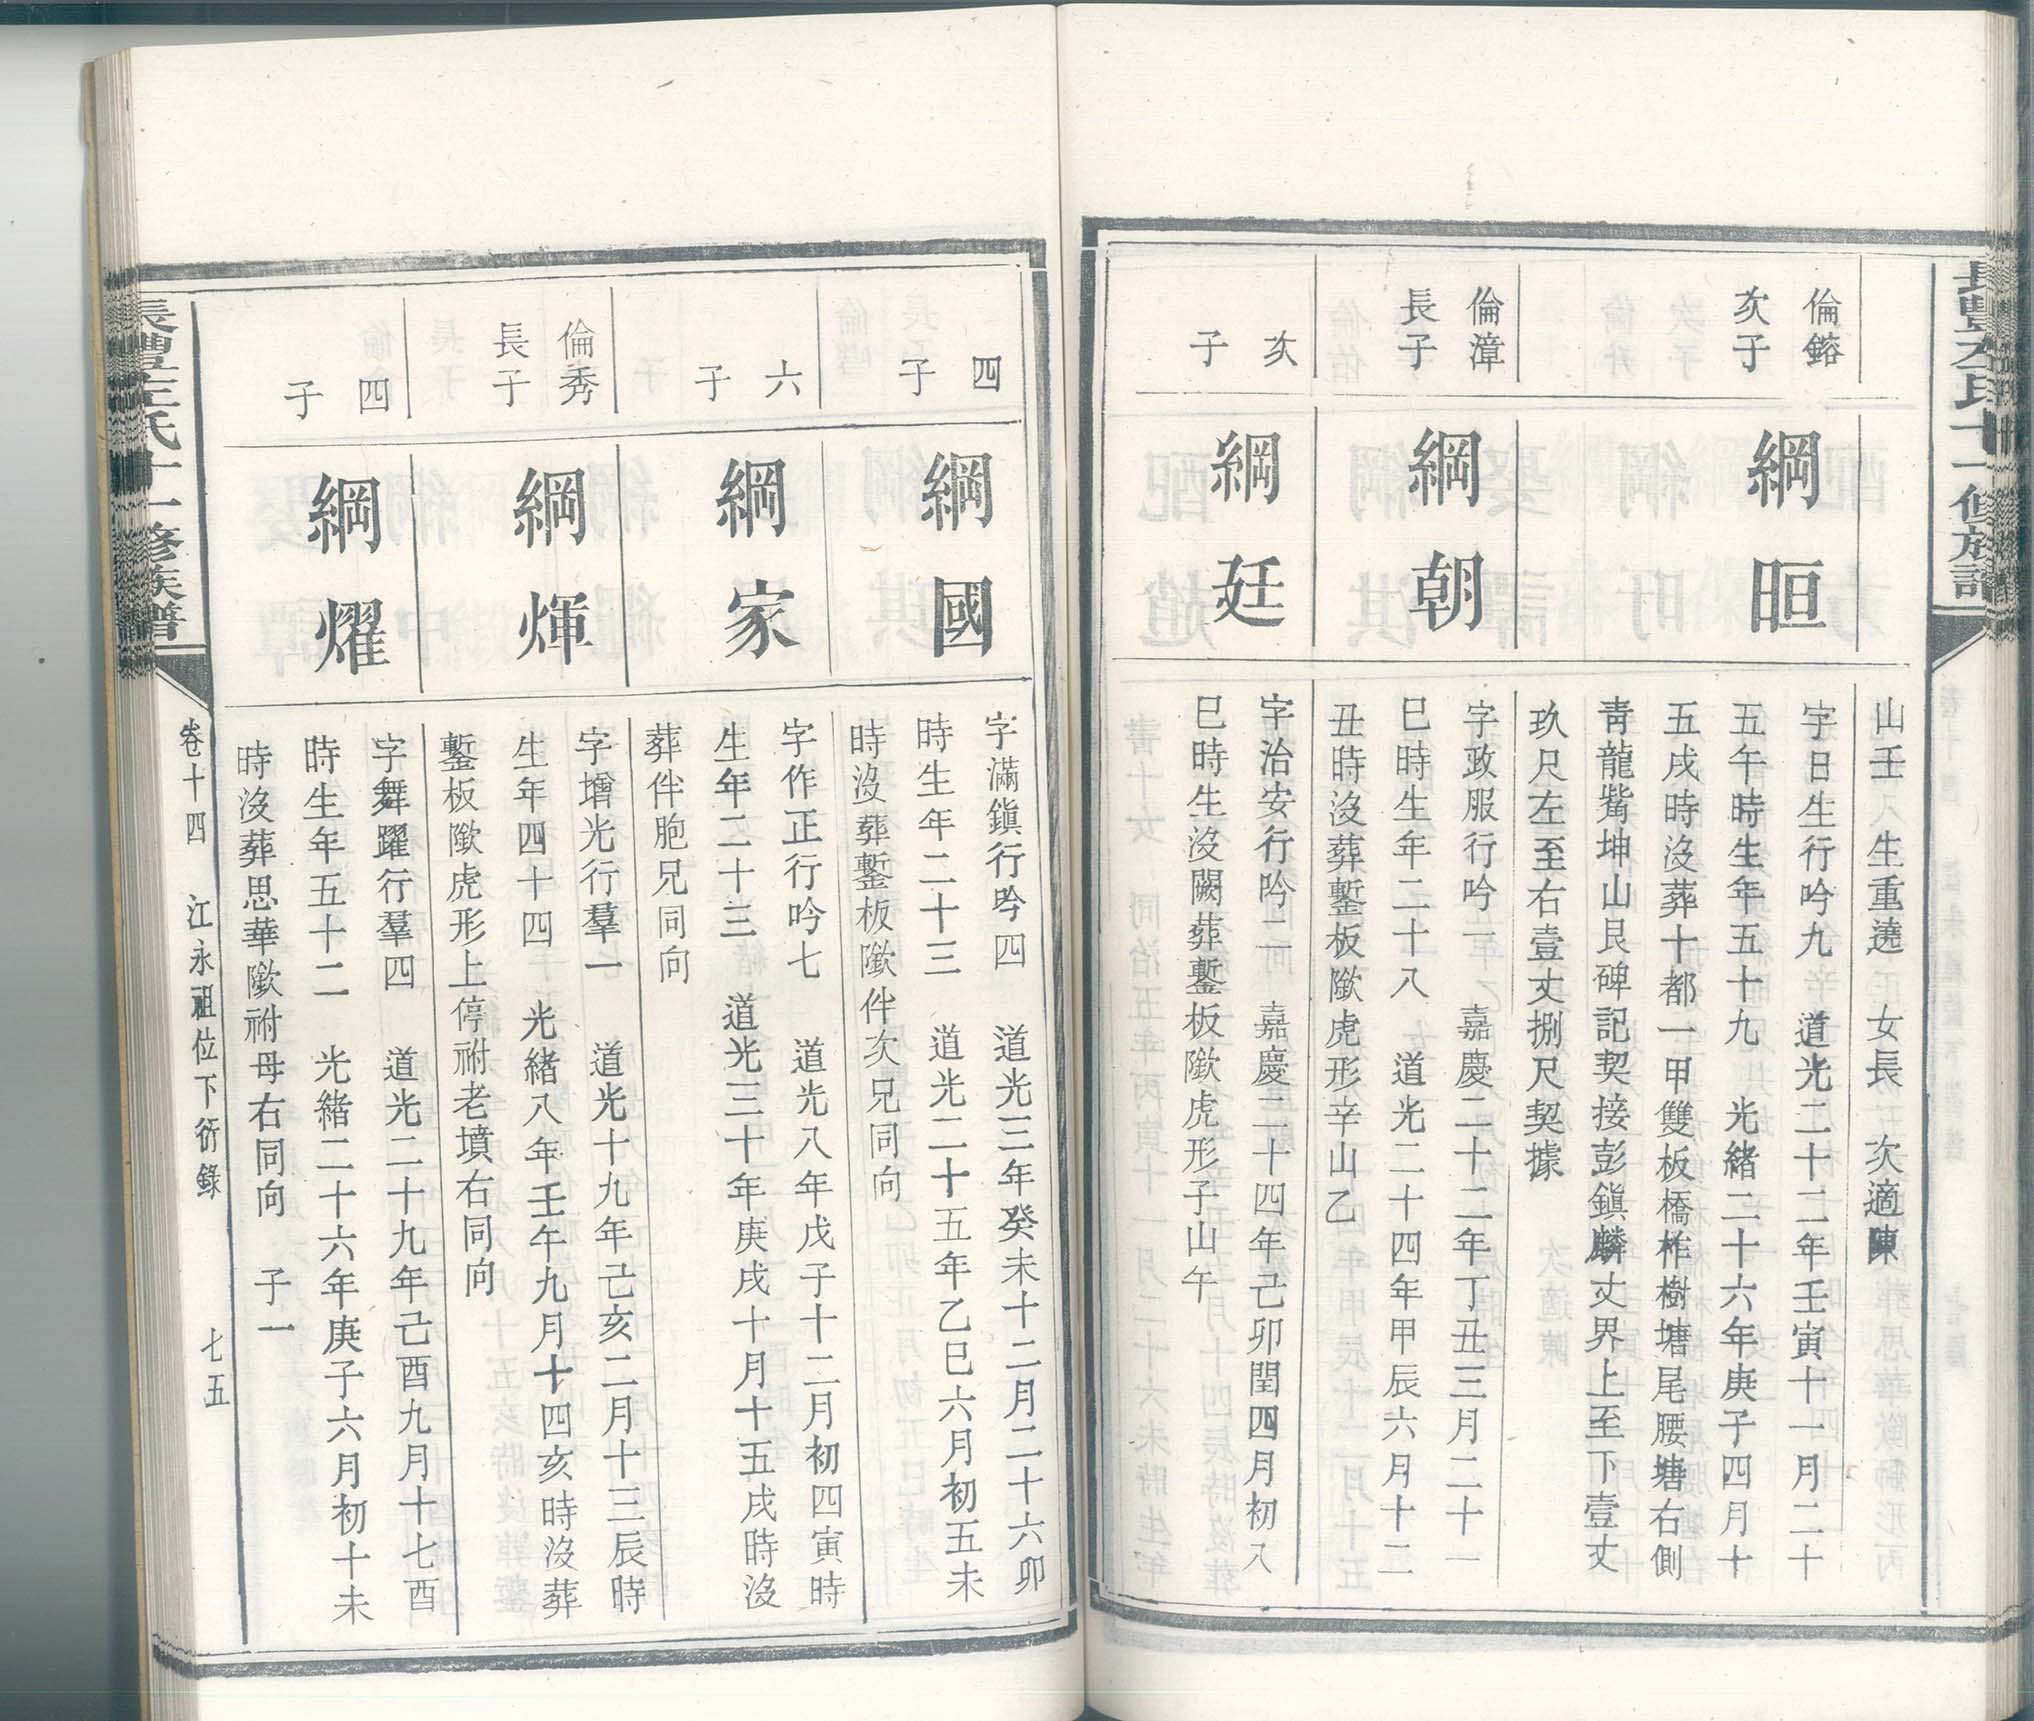 山壬 生重遶 女長 次適陳
倫鎔
次子
綱晅
字日生行吟九 道光二十二年壬寅十一月二十
五午時生年五十九 光緒二十六年庚子四月十
五戌時沒葬十都一甲雙板橋柞樹塘尾腰塘右側
靑龍觜坤山艮碑記契接彭鎭麟丈界上至下壹丈
玖尺左至右壹丈捌尺契據
倫漳
長子
綱朝
字政服行吟一 嘉慶二十二年丁丑三月二十一
巳時生年二十八 道光二十四年甲辰六月十二
丑時沒葬塹板隞虎形辛山乙
次
子
綱廷
字治安行吟二 嘉慶二十四年己卯閏四月初八
巳時生沒闕葬塹板隞虎形子山午
四
子
綱國
字滿鎭行吟四 道光三年癸未十二月二十六卯
時生年二十三 道光二十五年乙巳六月初五未
時沒葬塹板隞伴次兄同向
六
子
綱家
字作正行吟七 道光八年戊子十二月初四寅時
生年二十三 道光三十年庚戌十月十五戌時沒
葬伴胞兄同向
倫秀
長子
綱煇
字增光行羣一 道光十九年己亥二月十三辰時
生年四十四 光緒八年壬午九月十四亥時沒葬
塹板隞虎形上停祔老墳右同向
四
子
綱燿
字舞躍行羣四 道光二十九年己酉九月十七酉
時生年五十二 光緒二十六年庚子六月初十未
時沒葬思華隞祔母右同向 子一
卷十四 江永祖位下衍錄 七五
長豐左氏十一修族譜